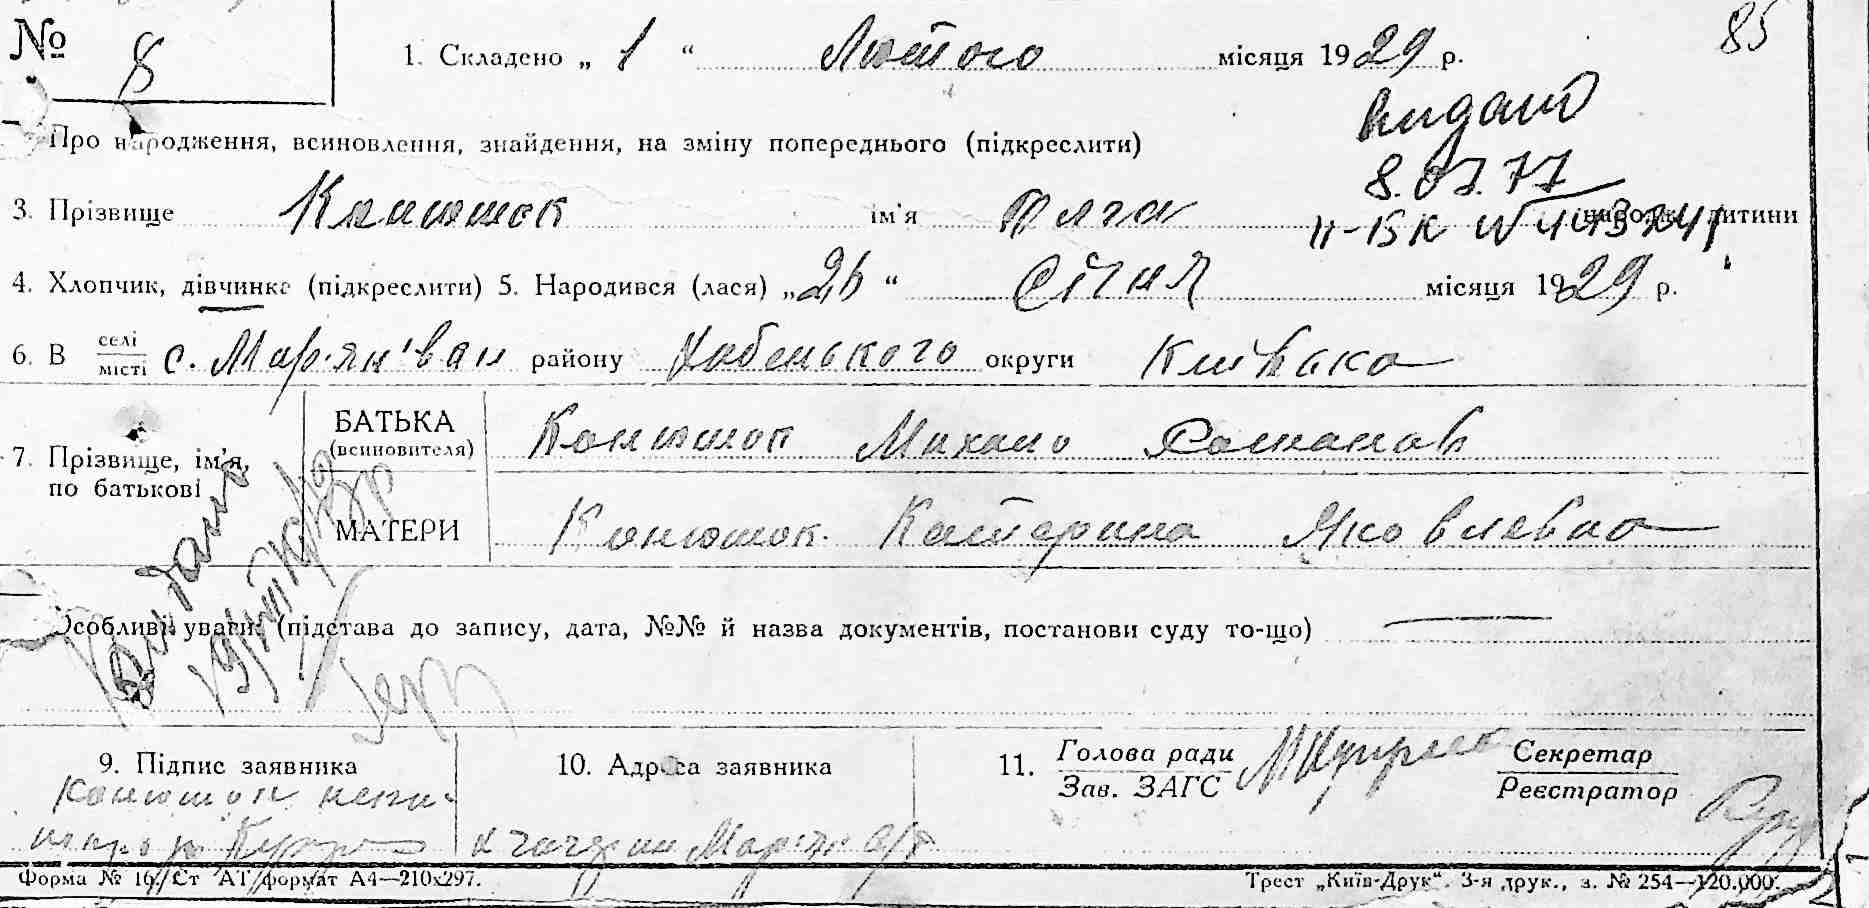 № 8
1. Складено „ 1 “ Лютого місяця 1929 р. 85
Про народження, всиновлення, знайдення, на зміну попереднього (підкреслити)
видано
8.07.77
3. Прізвище Конюшок ім'я Ольга дитини
ІІ-БК №
4. Хлопчик, дівчинка (підкреслити) 5. Народився (лася) „26 “ Січня місяця 1929 р.
6. В селі / місті с. Мар'янівка району Хабенського округи Київська
7. Прізвище, ім'я, по батькові
БАТЬКА (всиновителя) Конюшок Михайло Романов
МАТЕРИ Конюшок Катерина Яковлевна
Видано
Особливі уваги: (підстава до запису, дата, №№ й назва документів, постанови суду то-що)
9. Підпис заявника 10. Адреса заявника 11. Голова ради / Зав. ЗАГС Секретар / Реєстратор
Конюшок
Форма № 16. Ст АТ формат А4—210х297. Трест „Київ-Друк“. 3-я друк., з. № 254—120.000.